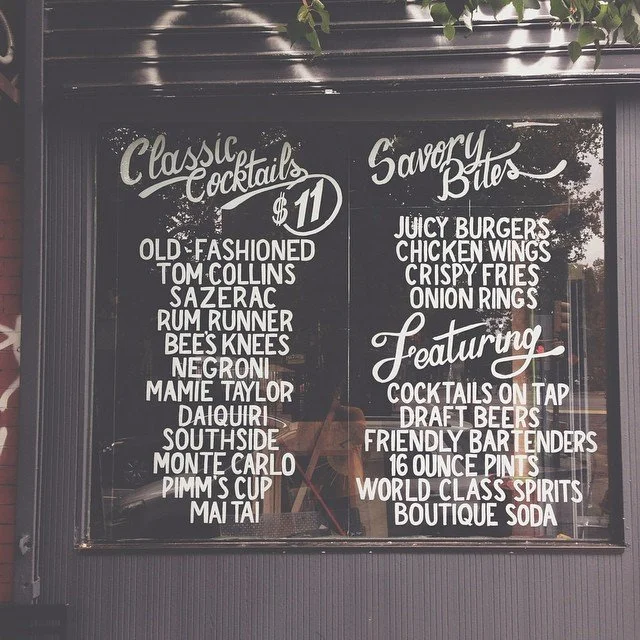 Classic
Cocktails
$11
OLD-FASHIONED
TOM COLLINS
SAZERAC
RUM RUNNER
BEE'S KNEES
NEGRONI
MAMIE TAYLOR
DAIQUIRI
SOUTHSIDE
MONTE CARLO
PIMM'S CUP
MAI TAI
Savory
Bites
JUICY BURGERS
CHICKEN WINGS
CRISPY FRIES
ONION RINGS
Featuring
COCKTAILS ON TAP
DRAFT BEERS
FRIENDLY BARTENDERS
16 OUNCE PINTS
WORLD CLASS SPIRITS
BOUTIQUE SODA